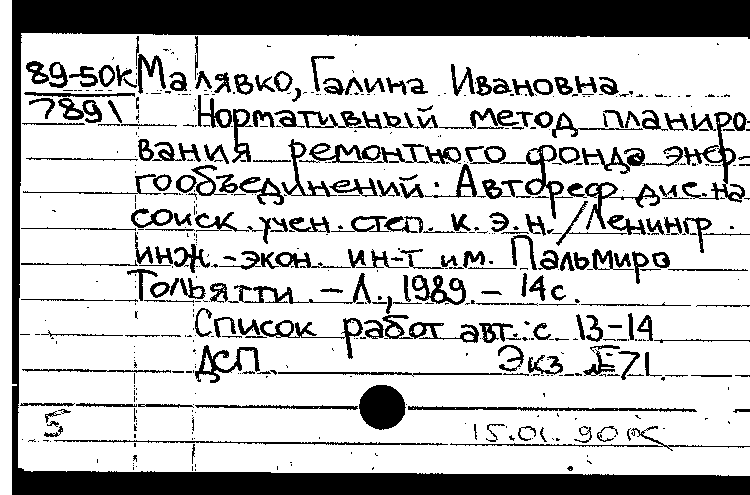 89-50к Малявко, Галина Ивановна.
7891 Нормативный метод планиро-
вания ремонтного фонда энер-
гообъединений: Автореф. дис. на
соиск. учен. степ. к. э. н. / Ленингр.
инж.-экон. ин-т им. Пальмиро
Тольятти. – Л., 1989. – 14 с.
Список работ авт.: с. 13-14.
ДСП. Экз. № 71.
5
15.01.90